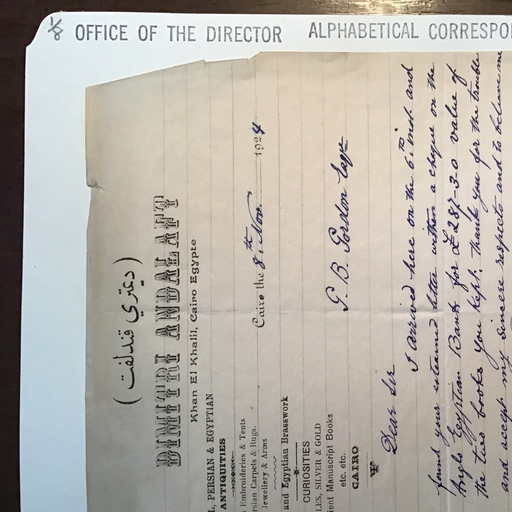 (ديمتري قندلفت)
DIMITRI ANDALAFT
Khan El Khalil, Cairo Egypte
PERSIAN & EGYPTIAN
ANTIQUITIES
Embroideries & Tents
Persian Carpets & Rugs.
Jewellery & Arms
and Egyptian Brasswork
CURIOSITIES
SILVER & GOLD
Manuscript Books
etc. etc.
CAIRO
Cairo the 8th Nov. 1924
G. B. Gordon Esqre
Dear Sir
I arrived here on the 6th inst. and
found your esteemed letter within a cheque on the
Anglo Egyptian Bank for £287-3.0 value of
the two books you kept. thank you for the trouble
and accept my sincere respects and to believe me
OFFICE OF THE DIRECTOR ALPHABETICAL